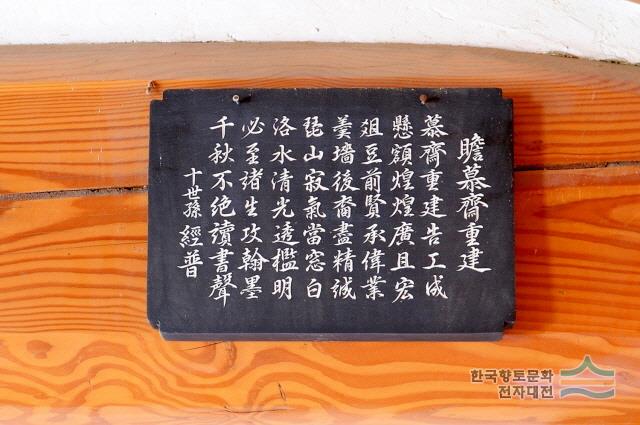 瞻慕齋重建
慕齋重建告工成
懸額煌煌廣且宏
俎豆前賢承偉業
羹墻後裔盡精誠
琵山寂氣當窓白
洛水清光透檻明
必至諸生攻翰墨
千秋不絶讀書聲
十世孫 經普
한국향토문화
전자대전